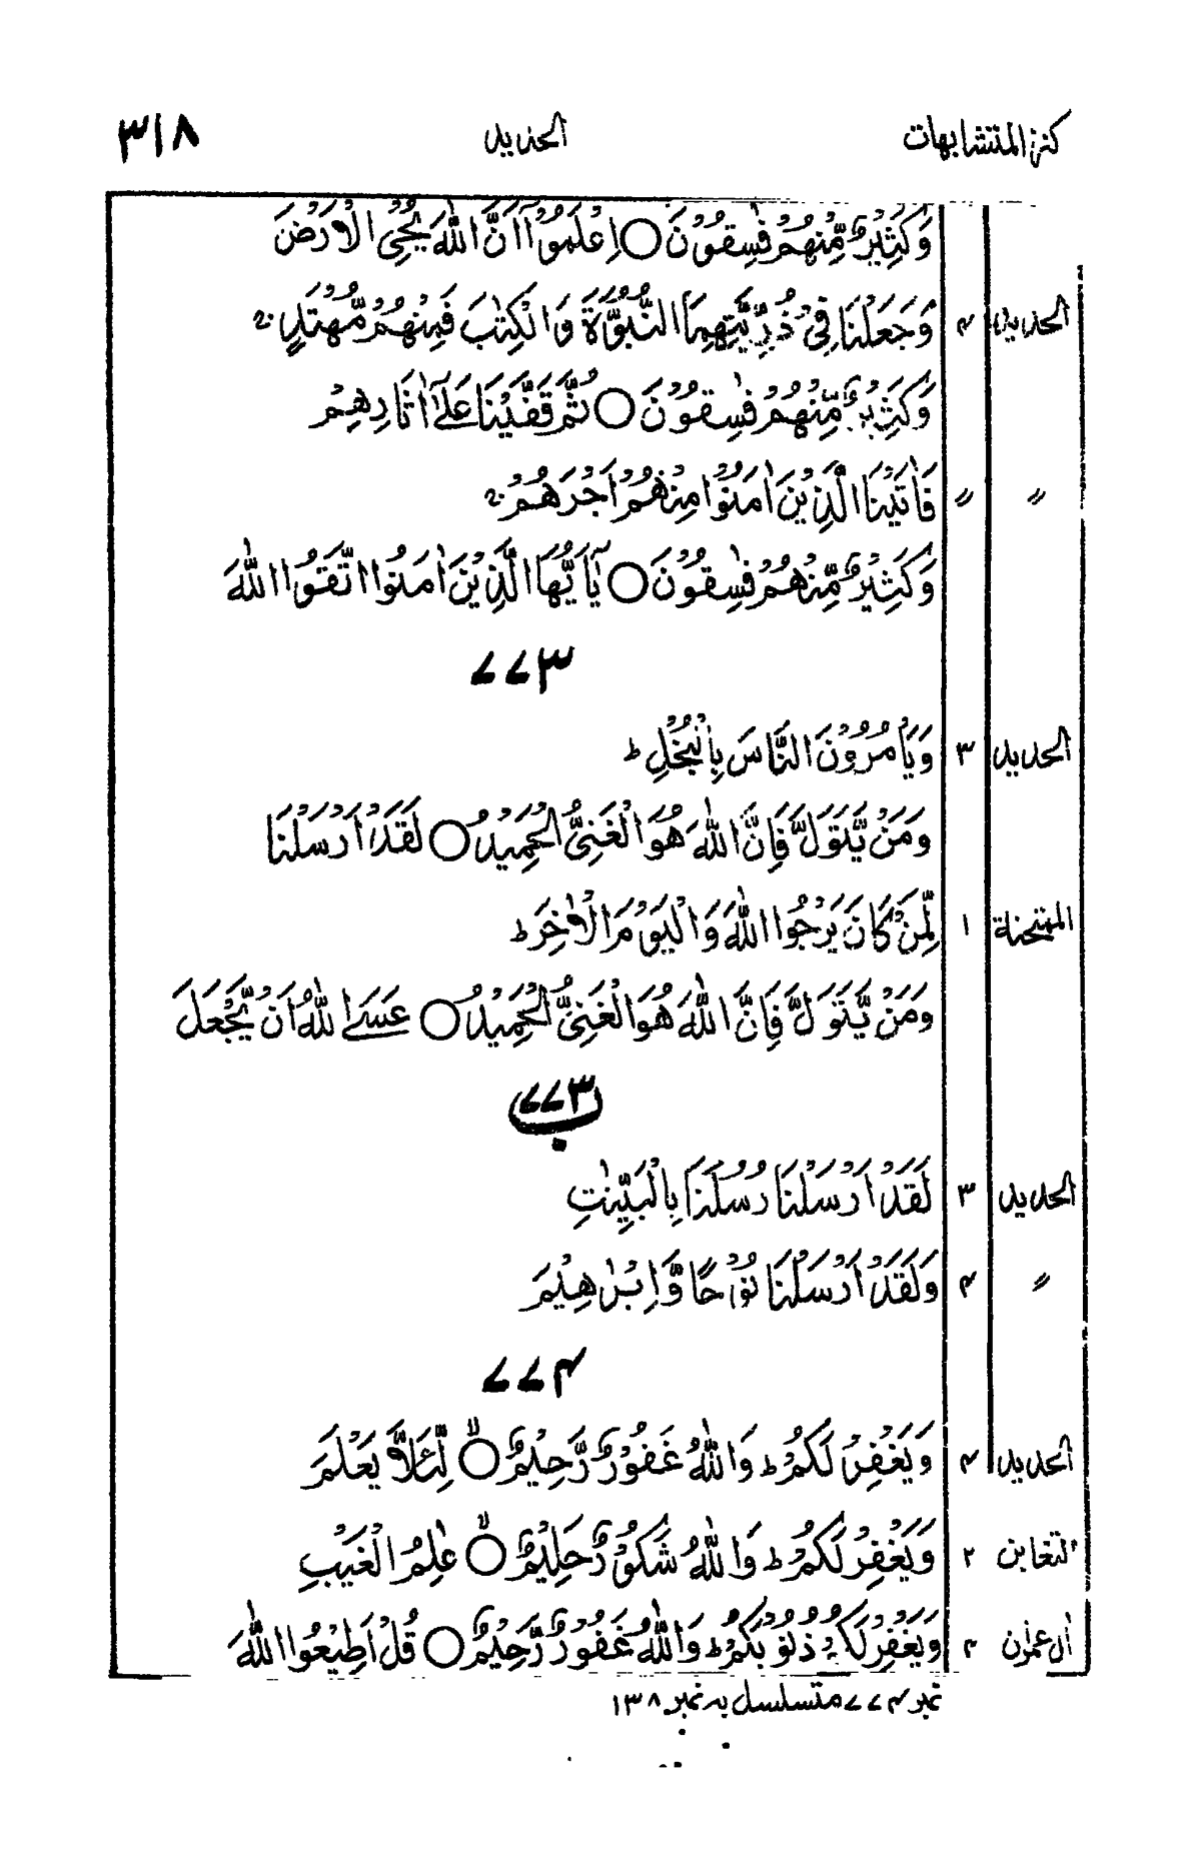 كنز المتشابهات الحديد ٣١٨
وَكَثِيْرٌ مِّنْهُمْ فٰسِقُوْنَ ○ اِعْلَمُوْٓا اَنَّ اللّٰهَ يُحْيِ الْاَرْضَ
الحديد ۴ وَجَعَلْنَا فِيْ ذُرِّيَّتِهِمَا النُّبُوَّةَ وَالْكِتٰبَ فَمِنْهُمْ مُّهْتَدٍ ج
وَكَثِيْرٌ مِّنْهُمْ فٰسِقُوْنَ ○ ثُمَّ قَفَّيْنَا عَلٰٓى اٰثَارِهِمْ
〃 〃 فَاٰتَيْنَا الَّذِيْنَ اٰمَنُوْا مِنْهُمْ اَجْرَهُمْ ج
وَكَثِيْرٌ مِّنْهُمْ فٰسِقُوْنَ ○ يٰٓاَيُّهَا الَّذِيْنَ اٰمَنُوا اتَّقُوا اللّٰهَ
٧٧٣
الحديد ٣ وَيَاْمُرُوْنَ النَّاسَ بِالْبُخْلِ ط
وَمَنْ يَّتَوَلَّ فَاِنَّ اللّٰهَ هُوَ الْغَنِيُّ الْحَمِيْدُ ○ لَقَدْ اَرْسَلْنَا
الممتحنة ١ لِّمَنْ كَانَ يَرْجُوا اللّٰهَ وَالْيَوْمَ الْاٰخِرَ ط
وَمَنْ يَّتَوَلَّ فَاِنَّ اللّٰهَ هُوَ الْغَنِيُّ الْحَمِيْدُ ○ عَسَى اللّٰهُ اَنْ يَّجْعَلَ
٧٧٣ ب
الحديد ٣ لَقَدْ اَرْسَلْنَا رُسُلَنَا بِالْبَيِّنٰتِ
〃 ۴ وَلَقَدْ اَرْسَلْنَا نُوْحًا وَّاِبْرٰهِيْمَ
٧٧۴
الحديد ۴ وَيَغْفِرْ لَكُمْ ط وَاللّٰهُ غَفُوْرٌ رَّحِيْمٌ ○ لا لِّئَلَّا يَعْلَمَ
التغابن ٢ وَيَغْفِرْ لَكُمْ ط وَاللّٰهُ شَكُوْرٌ حَلِيْمٌ ○ لا عٰلِمُ الْغَيْبِ
اٰل عمرٰن ۴ وَيَغْفِرْ لَكُمْ ذُنُوْبَكُمْ ط وَاللّٰهُ غَفُوْرٌ رَّحِيْمٌ ○ قُلْ اَطِيْعُوا اللّٰهَ
نمبر ٧٧۴ متسلسل به نمبر ١٣٨